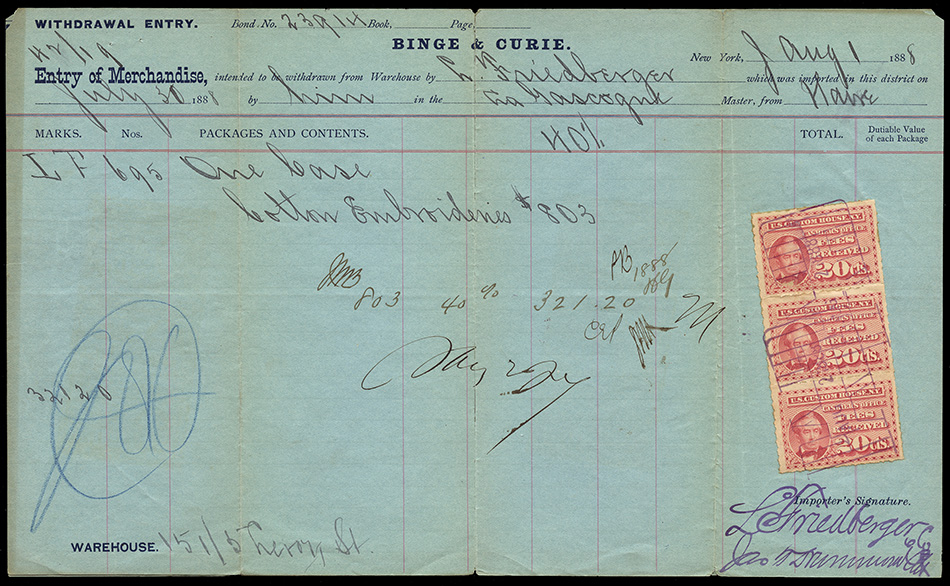 WITHDRAWAL ENTRY. Bond. No. 23914 Book, Page
BINGE & CURIE.
New York, Aug 1 1888
Entry of Merchandise, intended to be withdrawn from Warehouse by L. Friedberger which was imported in this district on
July 30 1888 by him in the La Gascogne Master, from Havre
MARKS. Nos. PACKAGES AND CONTENTS. 40% TOTAL. Dutiable Value of each Package
L F 695 One Case
Cotton Embroideries $803
803 40 % 321.20
1888
32120
U.S. CUSTOM HOUSE N.Y.
CASHIER'S OFFICE
FEES
RECEIVED
20 cts.
U.S. CUSTOM HOUSE N.Y.
CASHIER'S OFFICE
FEES
RECEIVED
20 cts.
U.S. CUSTOM HOUSE N.Y.
CASHIER'S OFFICE
FEES
RECEIVED
20 cts.
Importer's Signature.
L. Friedberger
WAREHOUSE. 151/5 Leroy St.